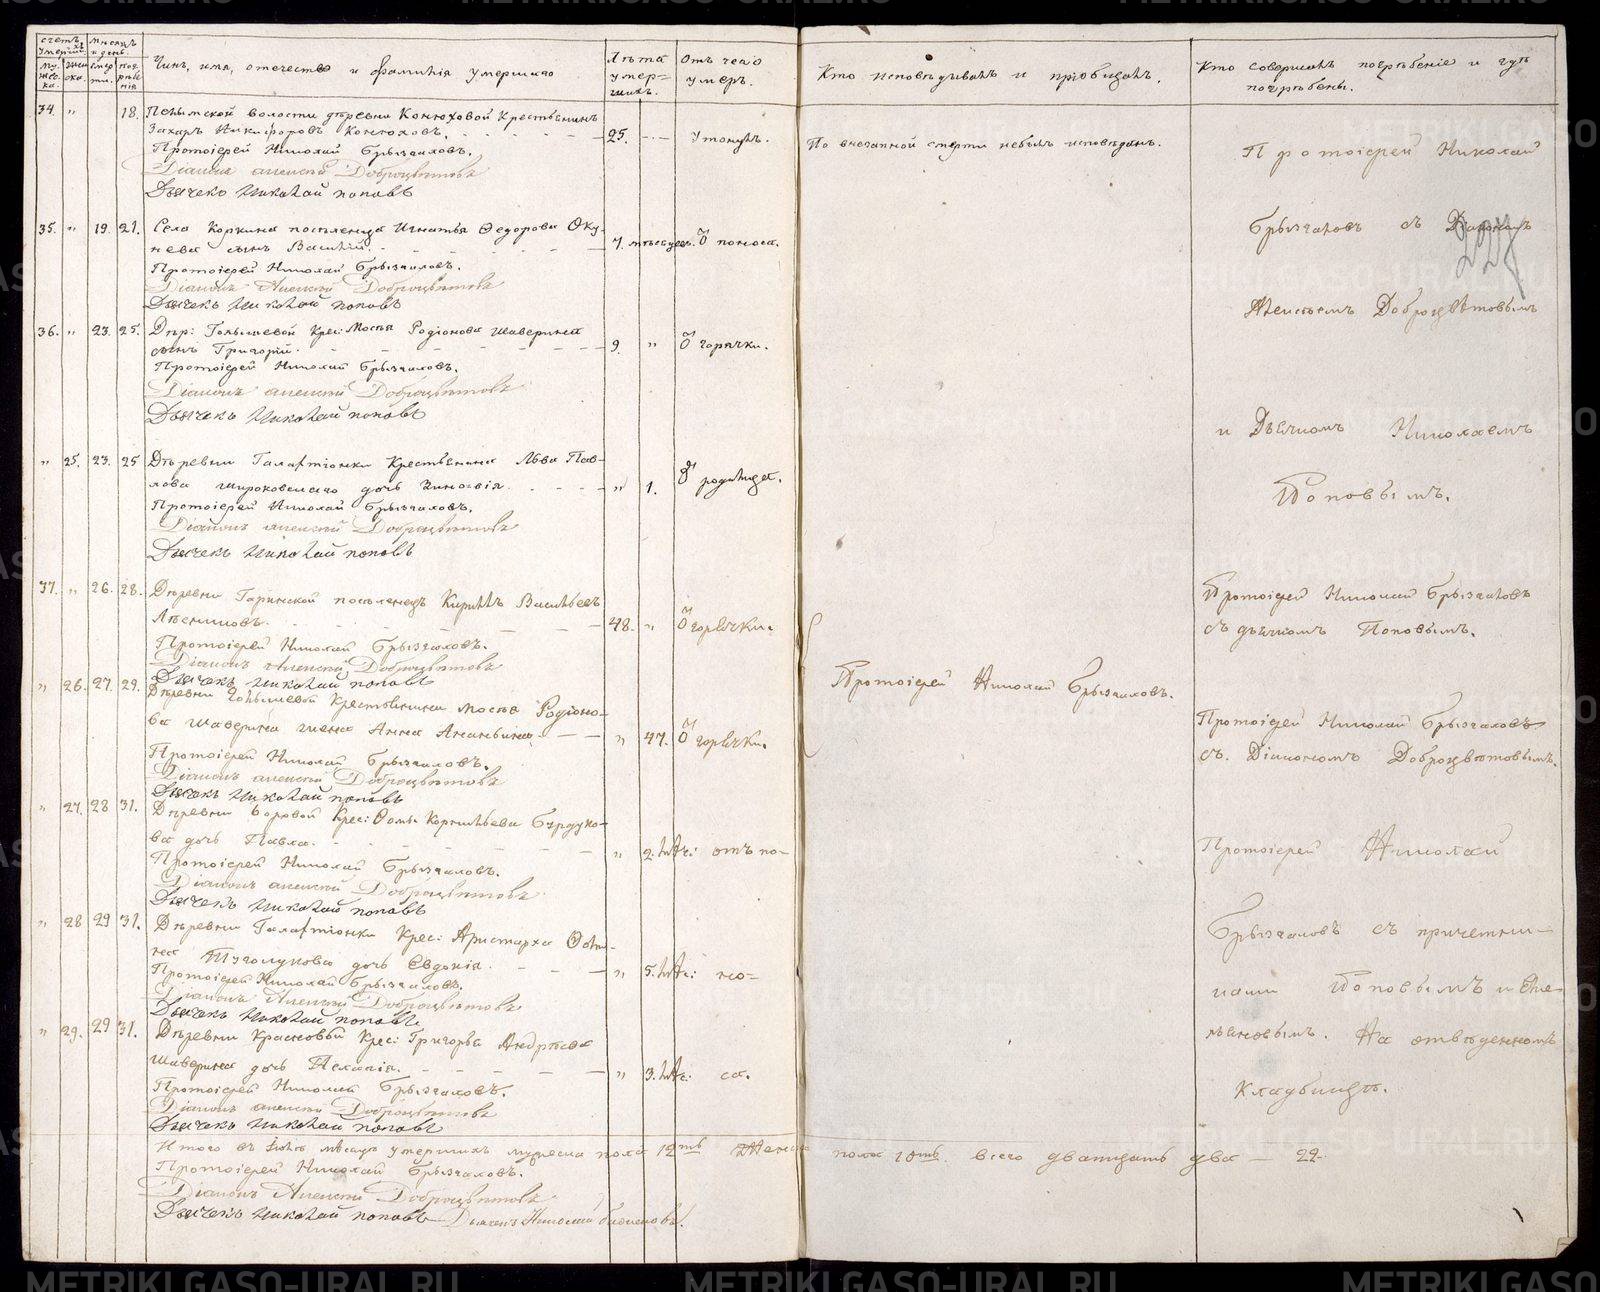 счетъ умершихъ
Мѣсяцъ и день.
Чинъ, имя, отечество и фамилія умершаго
Лѣта умершихъ.
Отъ чего умеръ.
Кто исповѣдывалъ и пріобщалъ.
Кто совершалъ погребеніе и гдѣ погребены.
34. " 18. Пелымской волости деревни Конюховой Крестьянинъ
Захаръ Никифоровъ Конюховъ. 25. Утонулъ. По внезапной смерти небылъ исповѣданъ.
Протоіерей Николай Брызгаловъ.
Діаконъ Алексѣй Доброцвѣтовъ
Дьячекъ Николай Поповъ
35. " 19. 21. Села Коркина поселенца Игнатья Ѳедорова Оку-
нева сынъ Василій. 7. мѣсяцев. Ѿ поноса.
Протоіерей Николай Брызгаловъ.
Діаконъ Алексѣй Доброцвѣтовъ
Дьячекъ Николай Поповъ
36. " 23. 25. Дер: Голышевой Крес: Мосѣя Родіонова Шаверина
сынъ Григорій. 9. " Ѿ горячки.
Протоіерей Николай Брызгаловъ.
Діаконъ Алексѣй Доброцвѣтовъ
Дьячекъ Николай Поповъ
" 25. 23. 25 Деревни Галактіонки Крестьянина Льва Пав-
лова Широковскаго дочь " 1. Ѿ родимца.
Протоіерей Николай Брызгаловъ.
Діаконъ Алексѣй Доброцвѣтовъ
Дьячекъ Николай Поповъ
37. " 26. 28. Деревни Гаринской поселенецъ Кирилъ Васильевъ
48. " Ѿ горячки.
Протоіерей Николай Брызгаловъ.
Діаконъ Алексѣй Доброцвѣтовъ
Дьячекъ Николай Поповъ
" 26. 27. 29. Деревни Голышевой Крестьянина Мосѣя Родіоно-
ва Шаверина жена Анна Ананьина. " 47. Ѿ горячки.
Протоіерей Николай Брызгаловъ.
Діаконъ Алексѣй Доброцвѣтовъ
Дьячекъ Николай Поповъ
" 27. 28 31. Деревни Боровой Крес: Ѳомы Корнильева Бурдуко-
ва дочь Павла. " 2. мѣс: отъ по-
Протоіерей Николай Брызгаловъ.
Діаконъ Алексѣй Доброцвѣтовъ
Дьячекъ Николай Поповъ
" 28 29 31. Деревни Галактіонки Крес: Аристарха
дочь Евдокія. " 5. мѣс: но-
Протоіерей Николай Брызгаловъ.
Діаконъ Алексѣй Доброцвѣтовъ
Дьячекъ Николай Поповъ
" 29. 29 31. Деревни Красновой Крес: Григорья Андрѣева
Шаверина дочь Пелагія. " 3. мѣс: са.
Протоіерей Николай Брызгаловъ.
Діаконъ Алексѣй Доброцвѣтовъ
Дьячекъ Николай Поповъ
Итого въ Іюлѣ мѣсяцѣ умершихъ мужеска пола 12ть Женска пола 10ть всего дватцать два — 22.
Протоіерей Николай Брызгаловъ.
Діаконъ Алексѣй Доброцвѣтовъ
Дьячекъ Николай Поповъ Дьячекъ Николай
Протоіерей Николай Брызгаловъ.
Протоіерей Николай
Брызгаловъ съ Діакономъ
Алексѣемъ Доброцвѣтовымъ
и Дьячкомъ Николаемъ
Поповымъ.
Протоіерей Николай Брызгаловъ
съ дьячкомъ Поповымъ.
Протоіерей Николай Брызгаловъ
съ Діакономъ Доброцвѣтовымъ.
Протоіерей Николай
Брызгаловъ съ причетни-
ками Поповымъ и Еме-
льяновымъ. На отведенномъ
Кладбищѣ.
METRIKI.GASO-URAL.RU